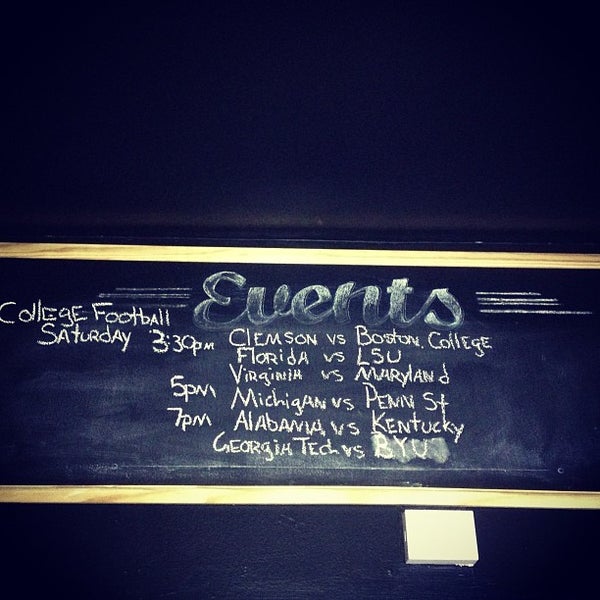 Events
College Football
Saturday 3:30pm Clemson vs Boston College
Florida vs LSU
Virginia vs Maryland
5pm Michigan vs Penn St
7pm Alabama vs Kentucky
Georgia Tech vs BYU